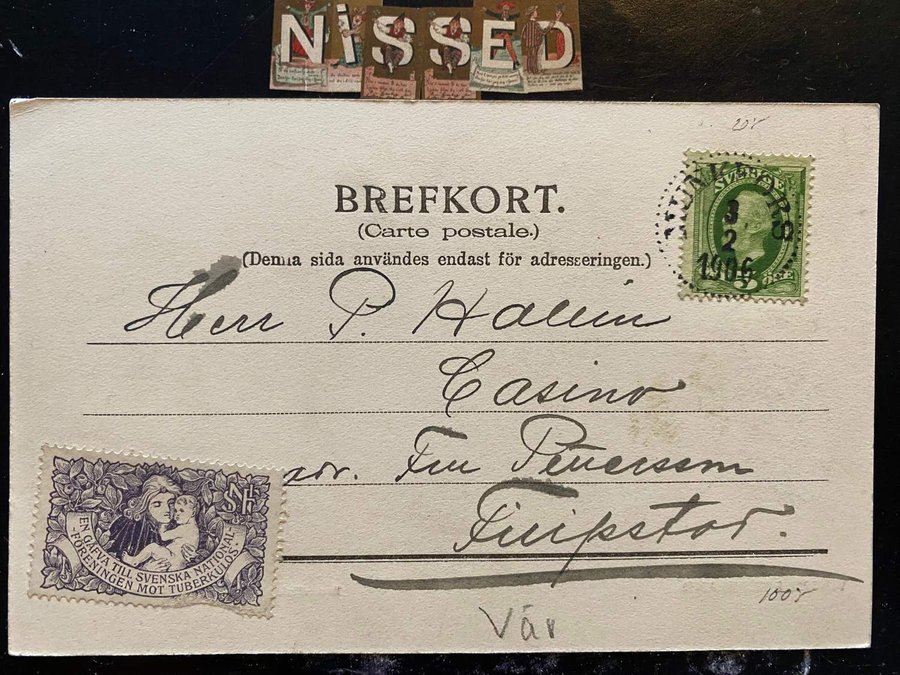 NiSSED
20:-
BREFKORT.
(Carte postale.)
(Denna sida användes endast för adresseringen.)
MUNKFORS
3
2
1906
5 ÖRE
Herr P. Hallin
Casino
adr. Fru Petterson
Filipstad.
EN GÅFVA TILL SVENSKA NATIONAL-
-FÖRENINGEN MOT TUBERKULOS
100:-
Vär